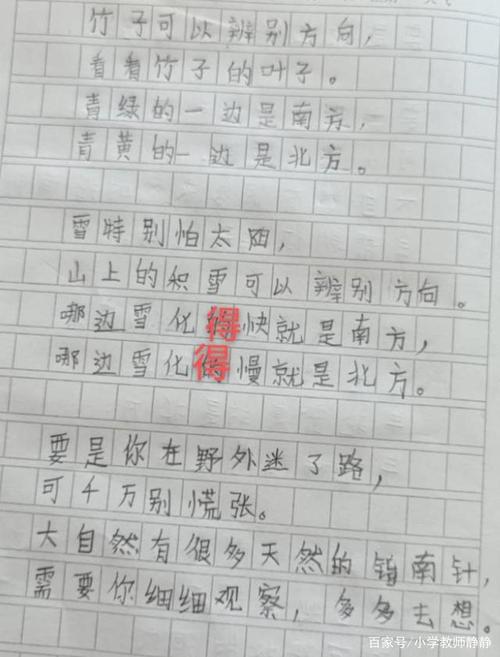 竹子可以辨别方向，
看看竹子的叶子。
青绿的一边是南方，
青黄的一边是北方。
雪特别怕太阳，
山上的积雪可以辨别方向。
哪边雪化得快就是南方，
哪边雪化得慢就是北方。
要是你在野外迷了路，
可千万别慌张。
大自然有很多天然的指南针，
需要你细细观察，多多去想。
百家号/小学教师静静